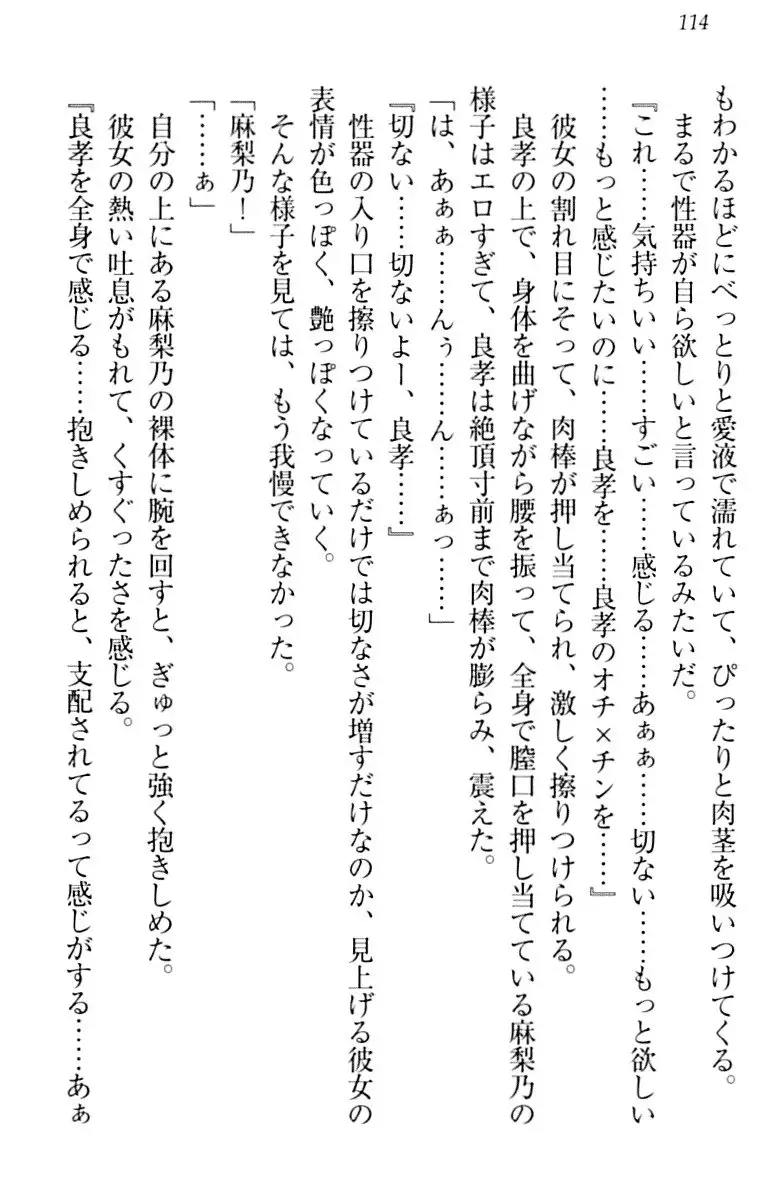 114
もわかるほどにべっとりと愛液で濡れていて、ぴったりと肉茎を吸いつけてくる。
まるで性器が自ら欲しいと言っているみたいだ。
『これ……気持ちいい……すごい……感じる……あぁぁ……切ない……もっと欲しい
……もっと感じたいのに……良孝を……良孝のオチ×チンを……』
彼女の割れ目にそって、肉棒が押し当てられ、激しく擦りつけられる。
良孝の上で、身体を曲げながら腰を振って、全身で膣口を押し当てている麻梨乃の
様子はエロすぎて、良孝は絶頂寸前まで肉棒が膨らみ、震えた。
「は、あぁぁ……んぅ……ん……ぁっ……」
『切ない……切ないよー、良孝……』
性器の入り口を擦りつけているだけでは切なさが増すだけなのか、見上げる彼女の
表情が色っぽく、艶っぽくなっていく。
そんな様子を見ては、もう我慢できなかった。
「麻梨乃！」
「……ぁ」
自分の上にある麻梨乃の裸体に腕を回すと、ぎゅっと強く抱きしめた。
彼女の熱い吐息がもれて、くすぐったさを感じる。
『良孝を全身で感じる……抱きしめられると、支配されてるって感じがする……あぁ